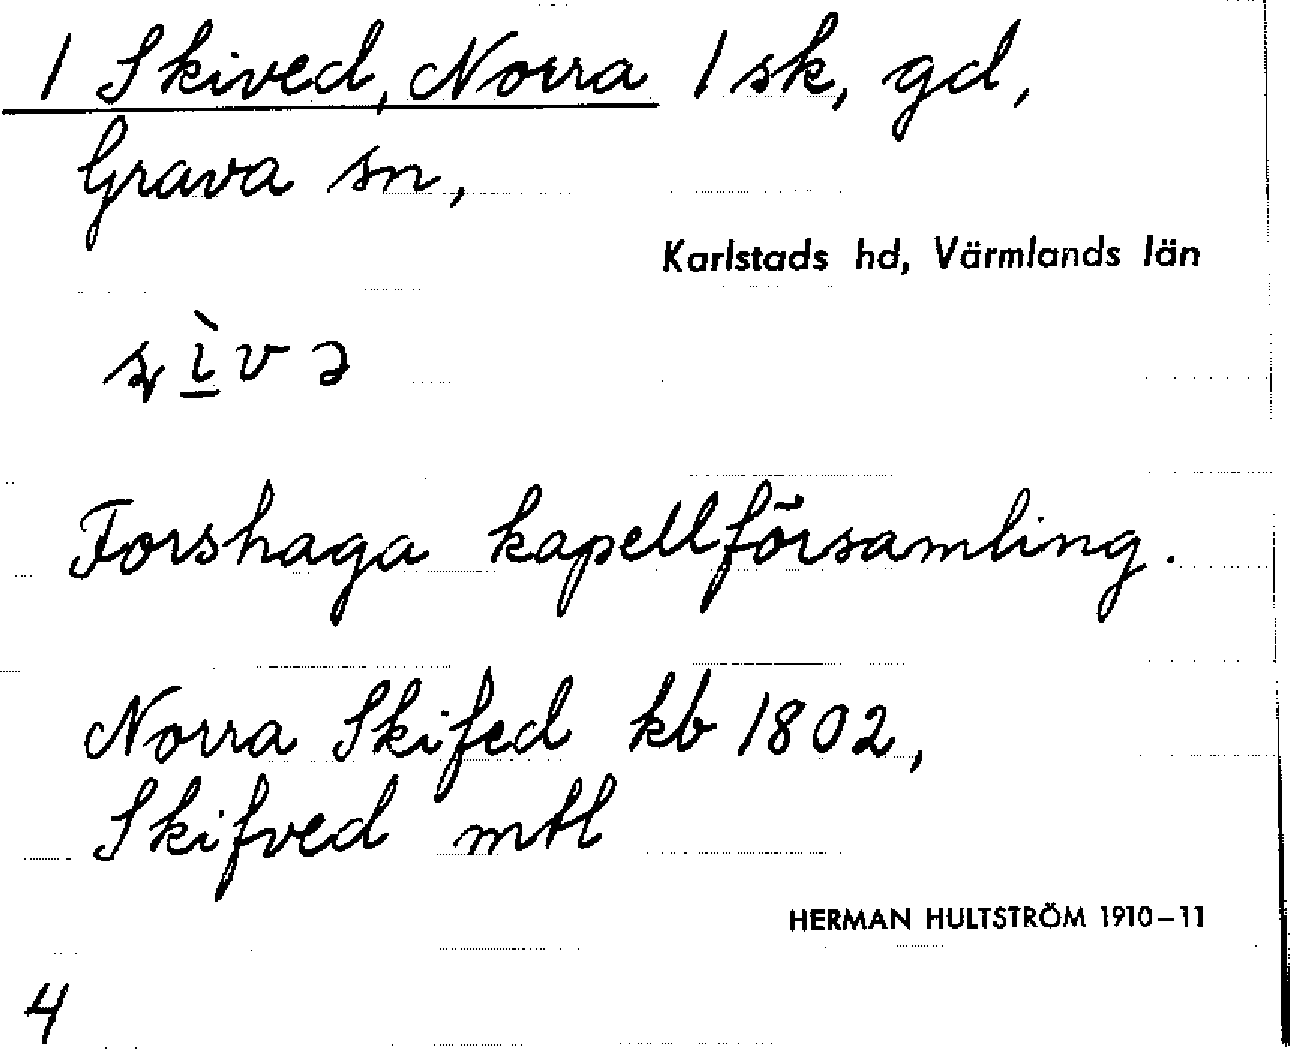 / Skived, Norra / sk, gd,
Grava sn,
Karlstads hd, Värmlands län
Forshaga kapellförsamling.
Norra Skifed kb 1802,
Skifved mtl
HERMAN HULTSTRÖM 1910–11
4